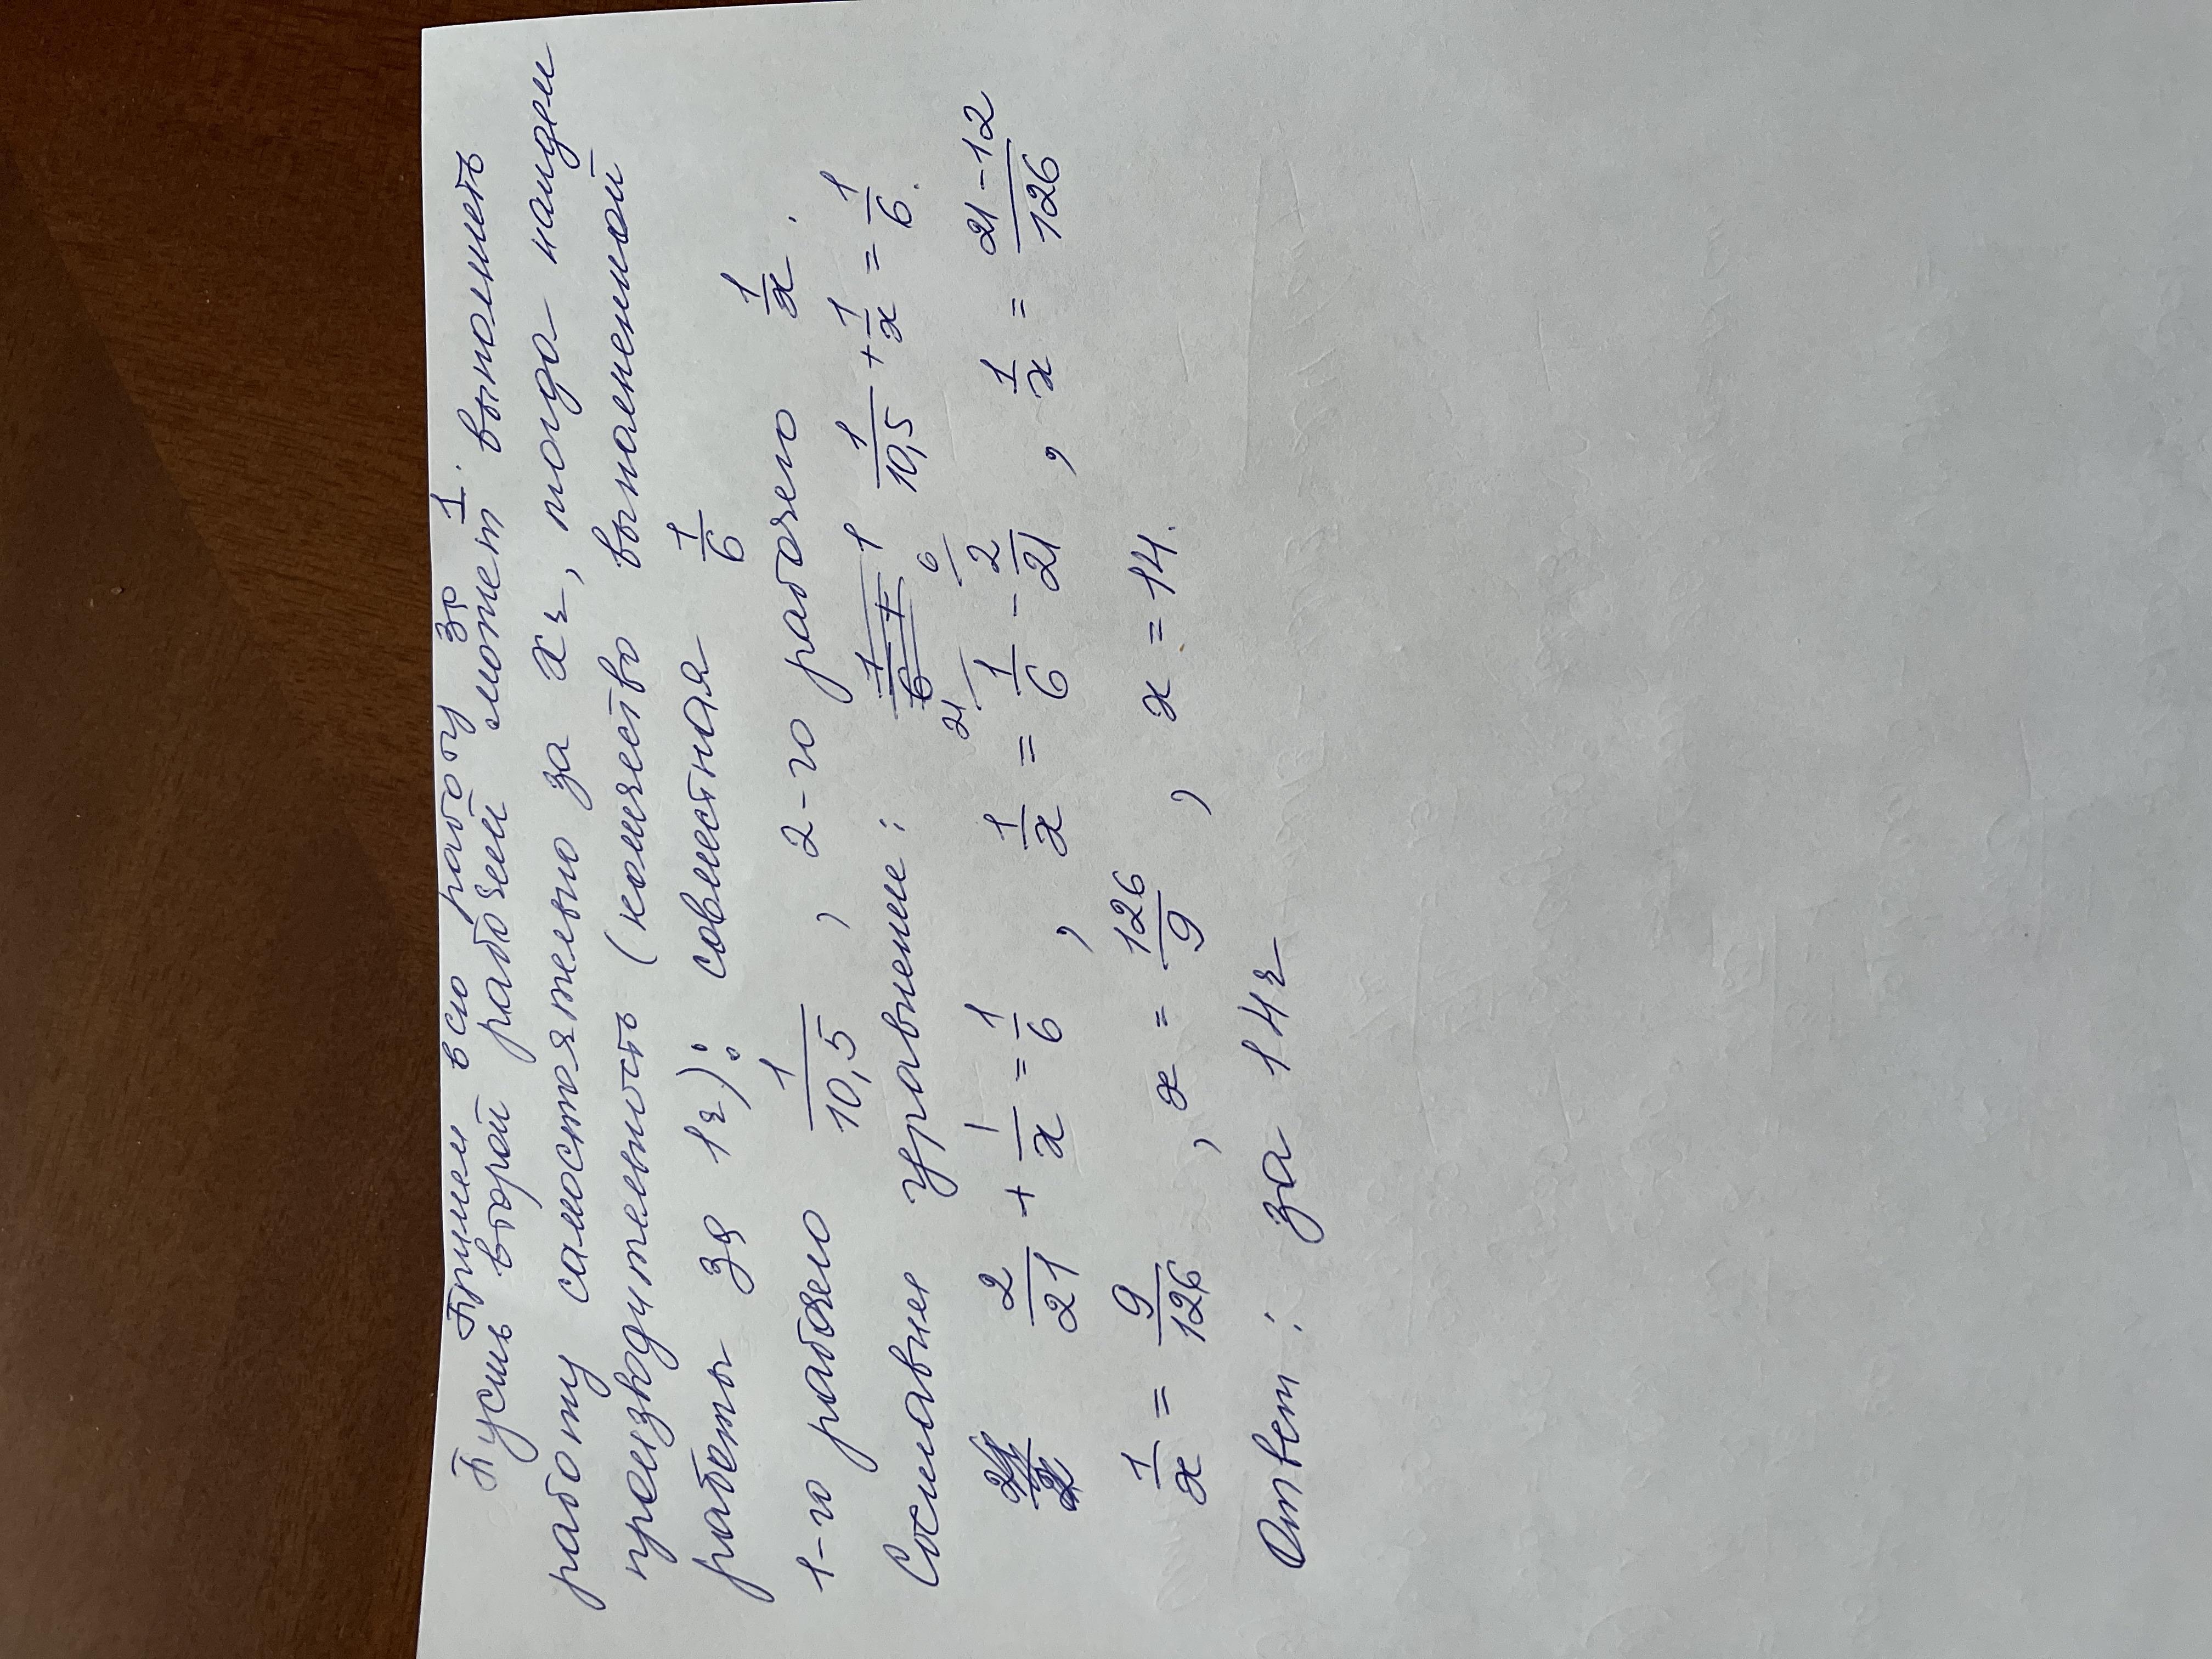 Примем всю работу за 1.
Пусть второй рабочий может выполнить
работу самостоятельно за x ч, тогда найдем
производительность (количество выполненной
работы за 1ч): совместная 1/6
1-го рабочего 1/10,5 , 2-го рабочего 1/x .
Составим уравнение: 1/10,5 + 1/x = 1/6.
2/21 + 1/x = 1/6 , 1/x = 1/6 - 2/21 , 1/x = (21-12)/126
1/x = 9/126 , x = 126/9 , x = 14.
Ответ: за 14ч